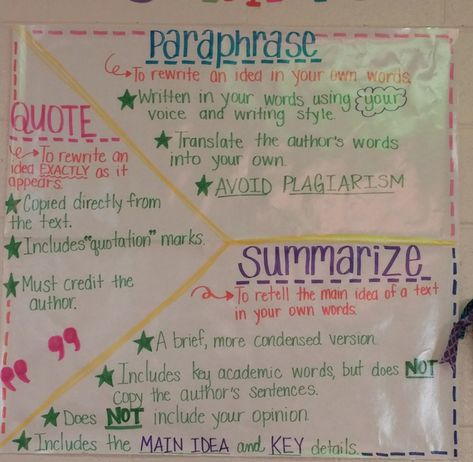 Paraphrase
To rewrite an idea in your own words.
★ Written in your words using your
voice and writing style.
★ Translate the author's words
into your own.
★ AVOID PLAGIARISM
QUOTE
To rewrite an
idea EXACTLY as it
appears.
★ Copied directly from
the text.
★ Includes "quotation" marks.
★ Must credit the
author.
Summarize
To retell the main idea of a text
in your own words.
★ A brief, more condensed version.
★ Includes key academic words, but does NOT
copy the author's sentences.
★ Does NOT include your opinion.
★ Includes the MAIN IDEA and KEY details.